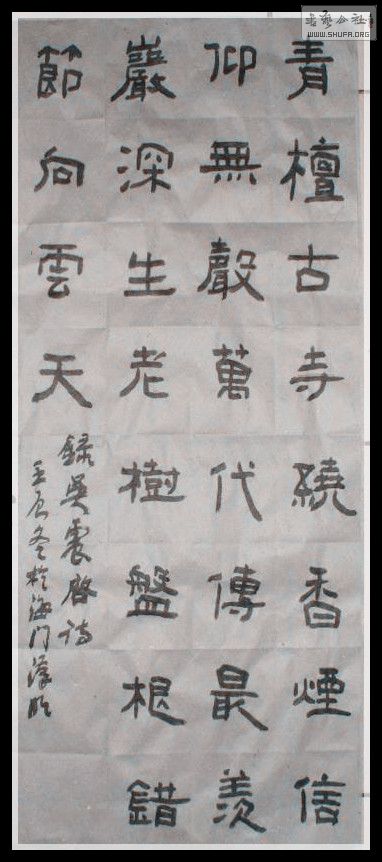 青檀古寺繞香煙信
仰無聲萬代傳最羨
巖深生老樹盤根錯
節向雲天
錄吳震啓詩
於海門
书艺公社
WWW.SHUFA.ORG